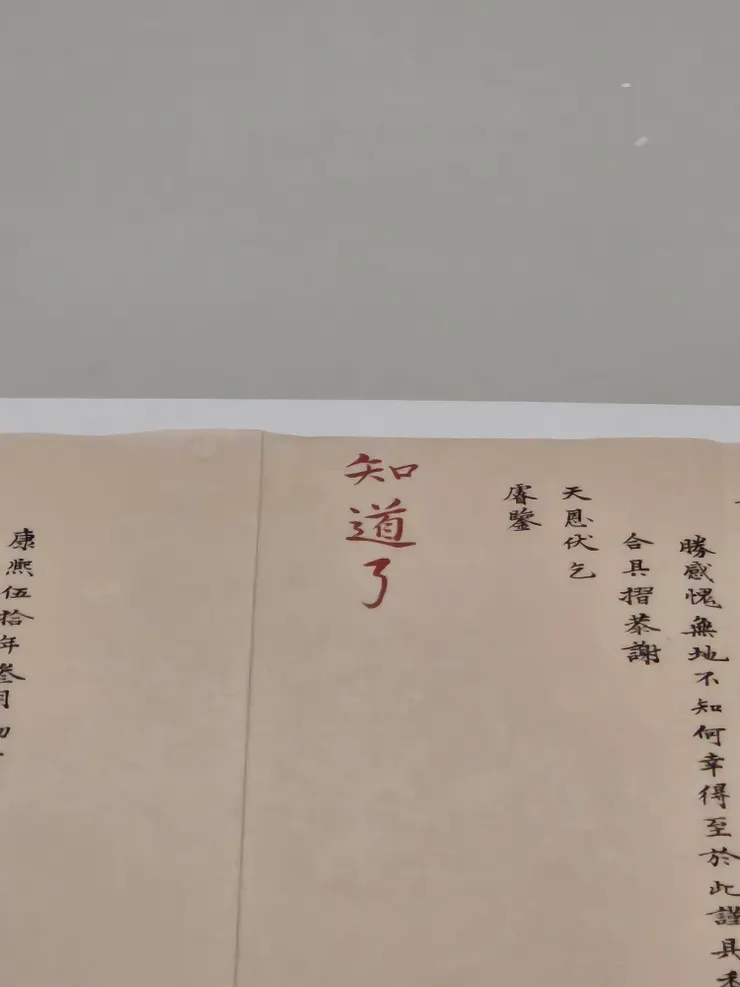 勝感愧無地不知何幸得至於此謹具
合具摺恭謝
天恩伏乞
睿鑒
知道了
康熙伍拾年叁月初